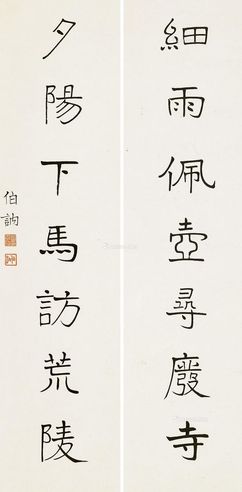 細雨佩壺尋廢寺
夕陽下馬訪荒陵
伯訥